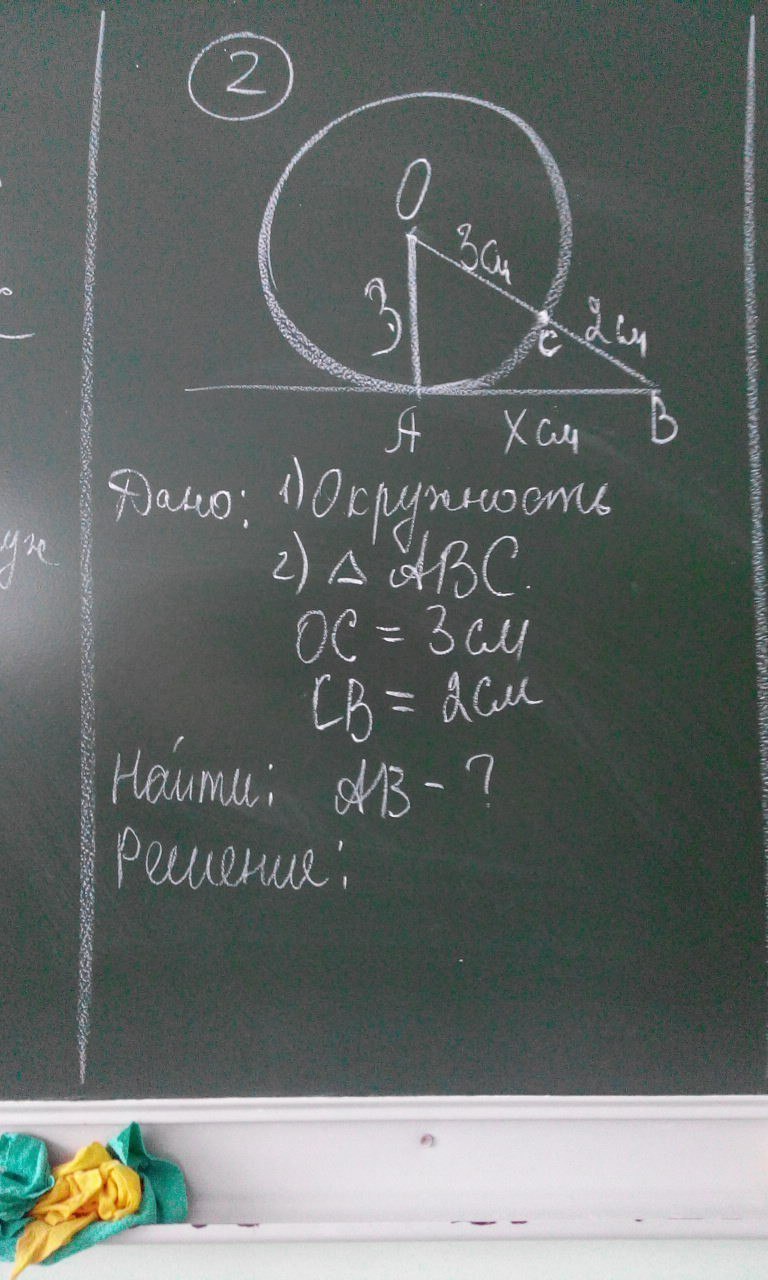 2
O
3см
3
C
2см
A
X см
B
Дано: 1) Окружность
2) △ ABC.
OC = 3см
CB = 2см
Найти: AB - ?
Решение: